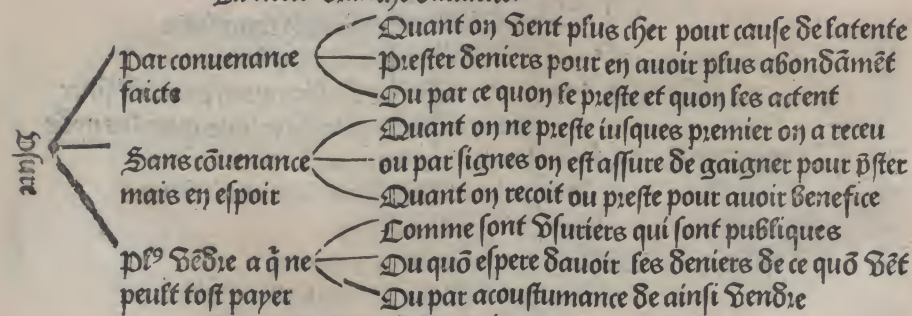 Usure
Par conuenance
faicte
Quant on vent plus cher pour cause de latente
Prester deniers pour en auoir plus abondāmēt
Ou par ce quon le preste et quon les actent
Sans cōuenance
mais en espoir
Quant on ne preste iusques premier on a receu
ou par signes on est assure de gaigner pour p̄ster
Quant on recoit ou preste pour auoir benefice
Plꝰ vēdre a q̄ ne
peult tost payer
Comme sont vsuriers qui sont publiques
Ou quō espere dauoir les deniers de ce quō vēt
Ou par acoustumance de ainsi vendre